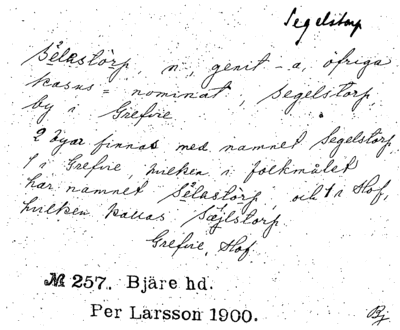 Segelstorp
Sêlastörp n, genit -a, öfriga
kasus = nominat, Segelstorp,
by i Grefvie
2 byar finnas med namnet Segelstorp
1 i Grefvie, hvilken i folkmålet
har namnet Sêlastörp, och 1 i Hof,
hvilken kallas Säjlstorp
Grefvie, Hof.
№ 257. Bjäre hd.
Per Larsson 1900.
Bj